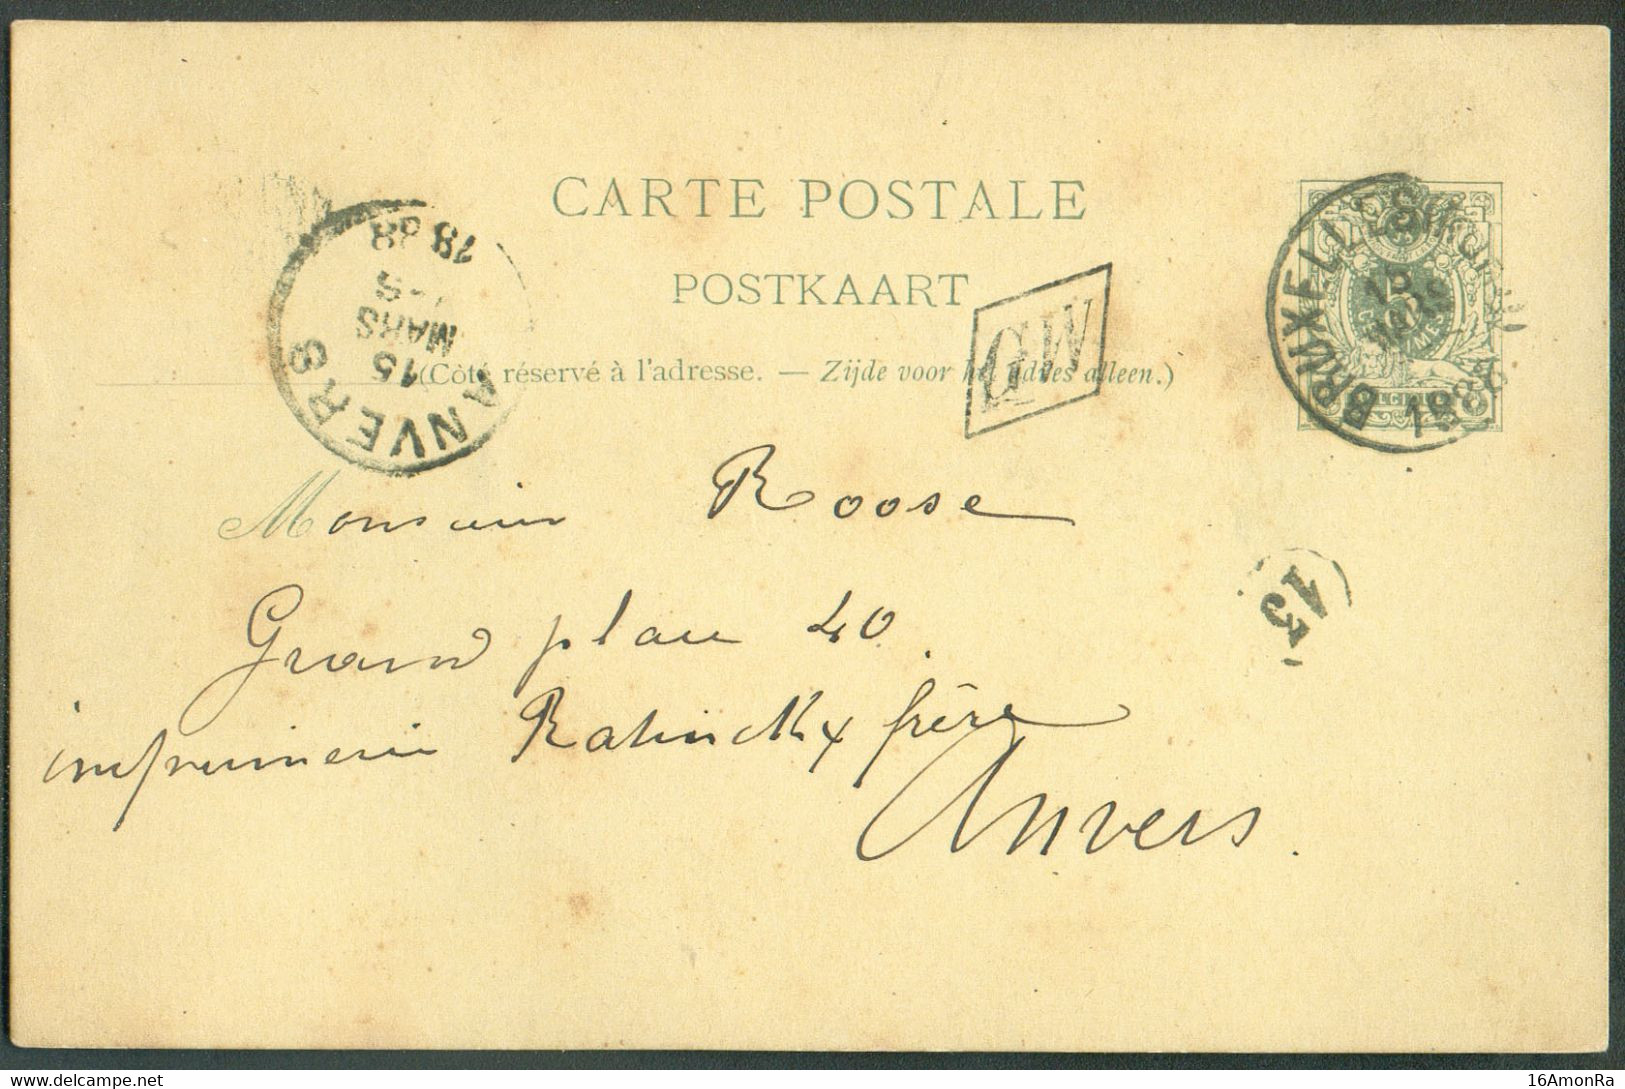 CARTE POSTALE
POSTKAART
(Côté réservé à l'adresse. — Zijde voor het adres alleen.)
GW
ANVERS
15
MARS
1888
BRUXELLES
MARS
1888
Monsieur Roose
13
Grand place 40.
imprimerie Ratinckx frère
Anvers.
delcampe.net
16AmonRa